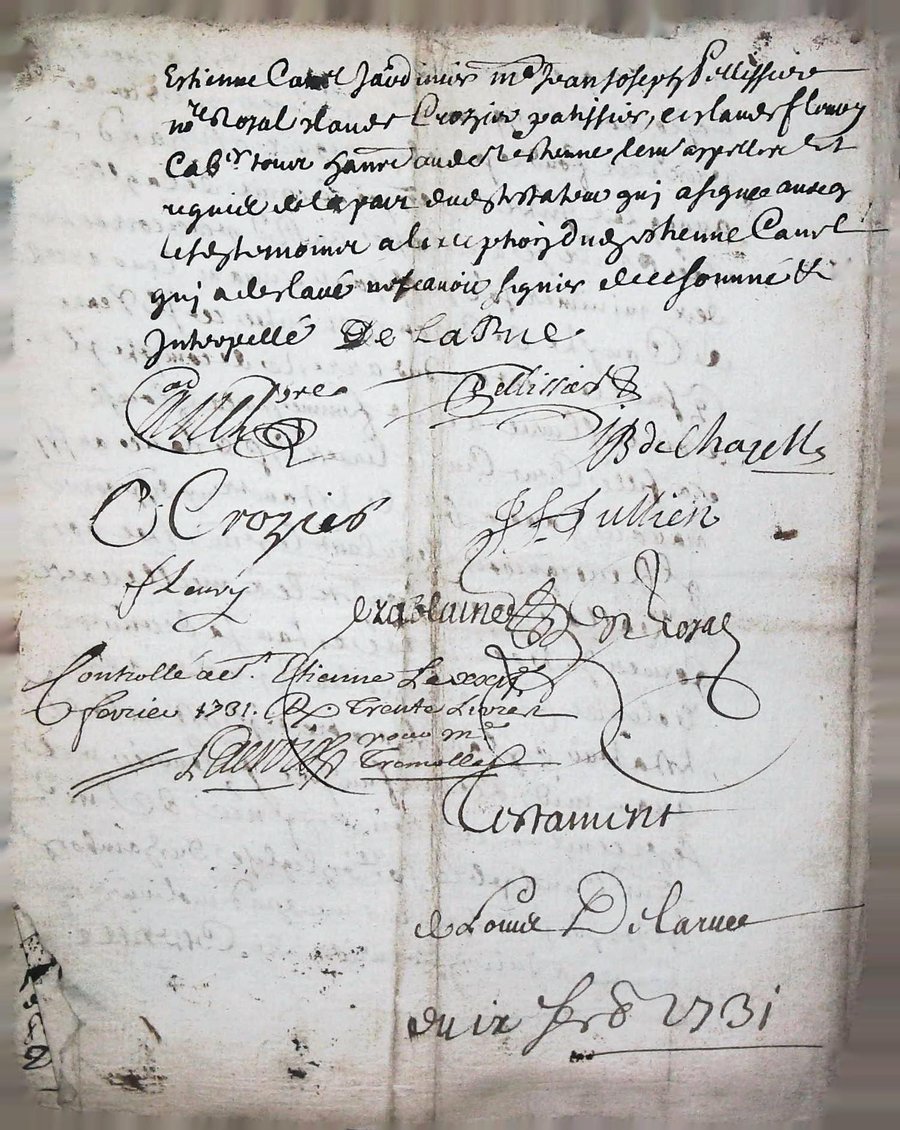 Estienne Cavel Jardinier me Jean Joseph Pellissier
nore Royal Claude Crozier patissier, et Claude fleury
Caber tous habns audt st estienne temr appelles Et
requis de la part dudt testateur qui a signee avecq
lesds temoins a lexception dud estienne Cavel
qui a declaré ne scavoir signer dece somme &
Interpellé De LaRue
Pellissier
JB de Chazelle
C Crozier
Jullien
fleury
Royal
Controllé a st. Etienne Le xxi
fevrier 1731. R Trente Livres
Tremolles
Testament
de Louis Delarue
du ix fer 1731